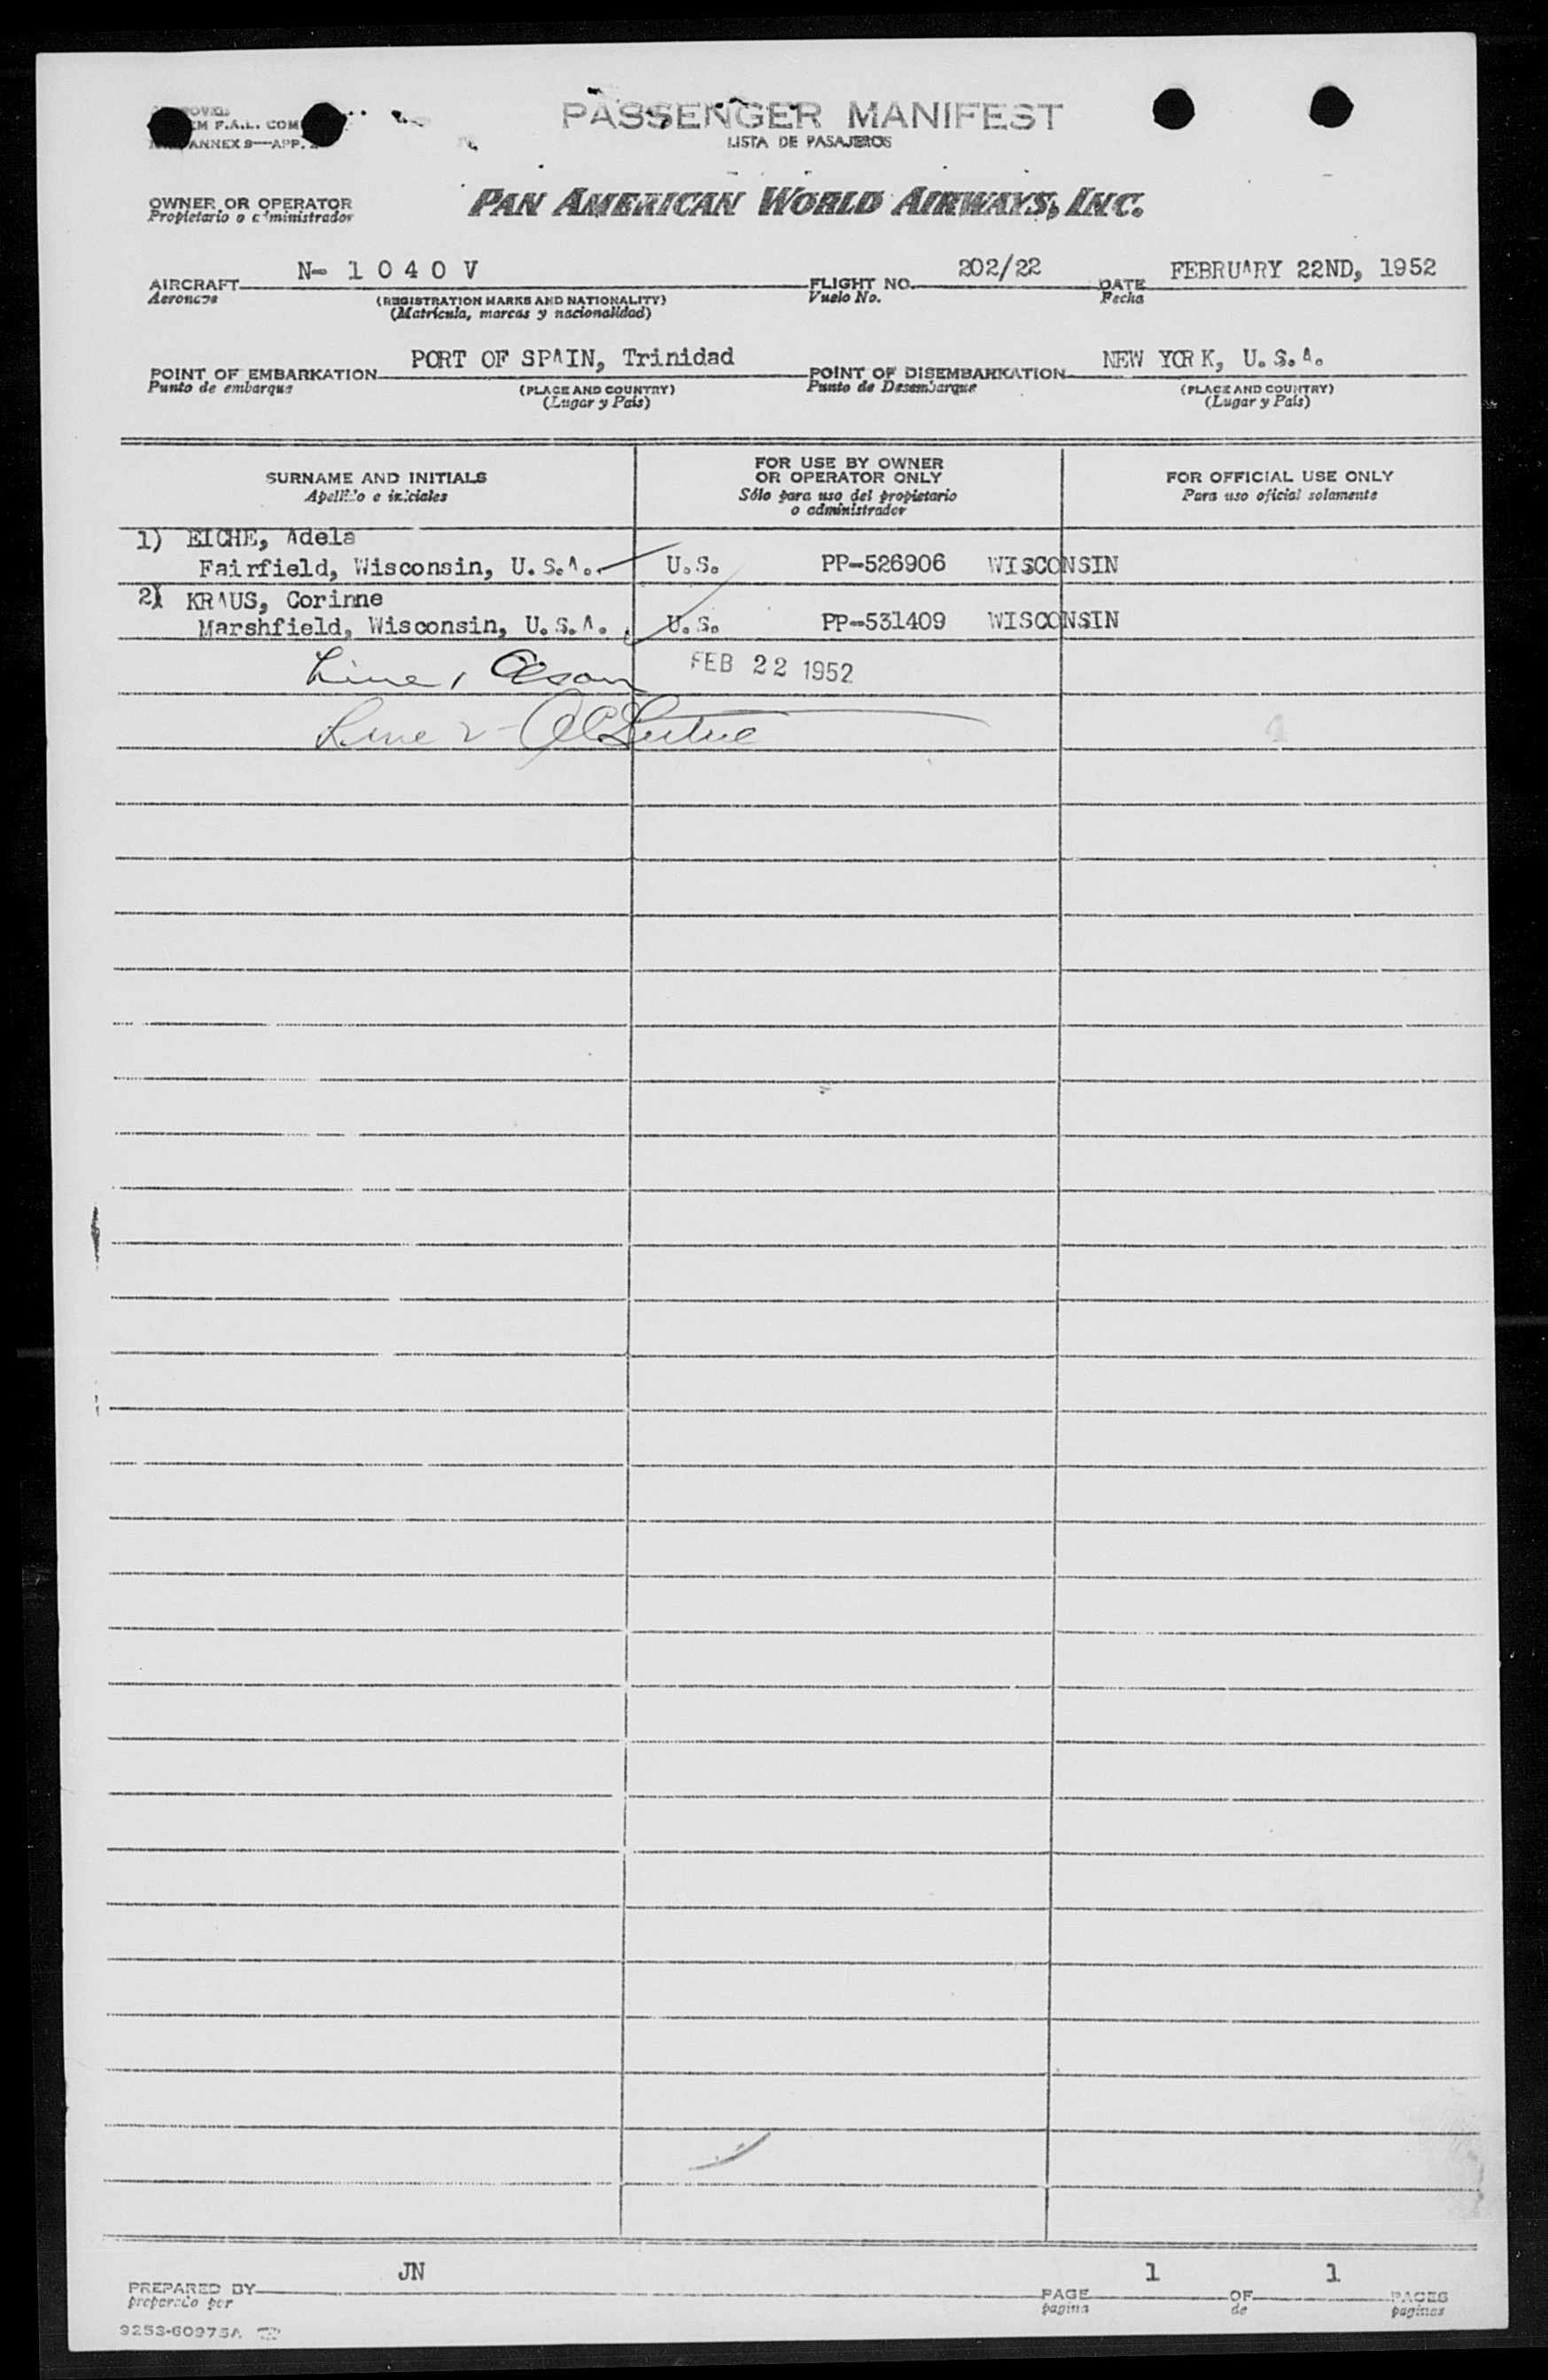 F.A.L. COM
ANNEX 9—APP.
PASSENGER MANIFEST
LISTA DE PASAJEROS
OWNER OR OPERATOR
Propietario o administrador
PAN AMERICAN WORLD AIRWAYS, INC.
AIRCRAFT N- 1 0 4 0 V FLIGHT NO. 202/22 DATE FEBRUARY 22ND, 1952
Aeronave (REGISTRATION MARKS AND NATIONALITY) Vuelo No. Fecha
(Matrícula, marcas y nacionalidad)
POINT OF EMBARKATION PORT OF SPAIN, Trinidad POINT OF DISEMBARKATION NEW YORK, U.S.A.
Punto de embarque (PLACE AND COUNTRY) Punto de Desembarque (PLACE AND COUNTRY)
(Lugar y País) (Lugar y País)
SURNAME AND INITIALS FOR USE BY OWNER OR OPERATOR ONLY FOR OFFICIAL USE ONLY
Apellido e iniciales Sólo para uso del propietario o administrador Para uso oficial solamente
1) EICHE, Adela
Fairfield, Wisconsin, U.S.A. U.S. PP-526906 WISCONSIN
2) KRAUS, Corinne
Marshfield, Wisconsin, U.S.A. U.S. PP-531409 WISCONSIN
Line 1 FEB 22 1952
Line 2-
JN 1 1
PREPARED BY PAGE OF PAGES
preparado por pagina de paginas
9253-60975A